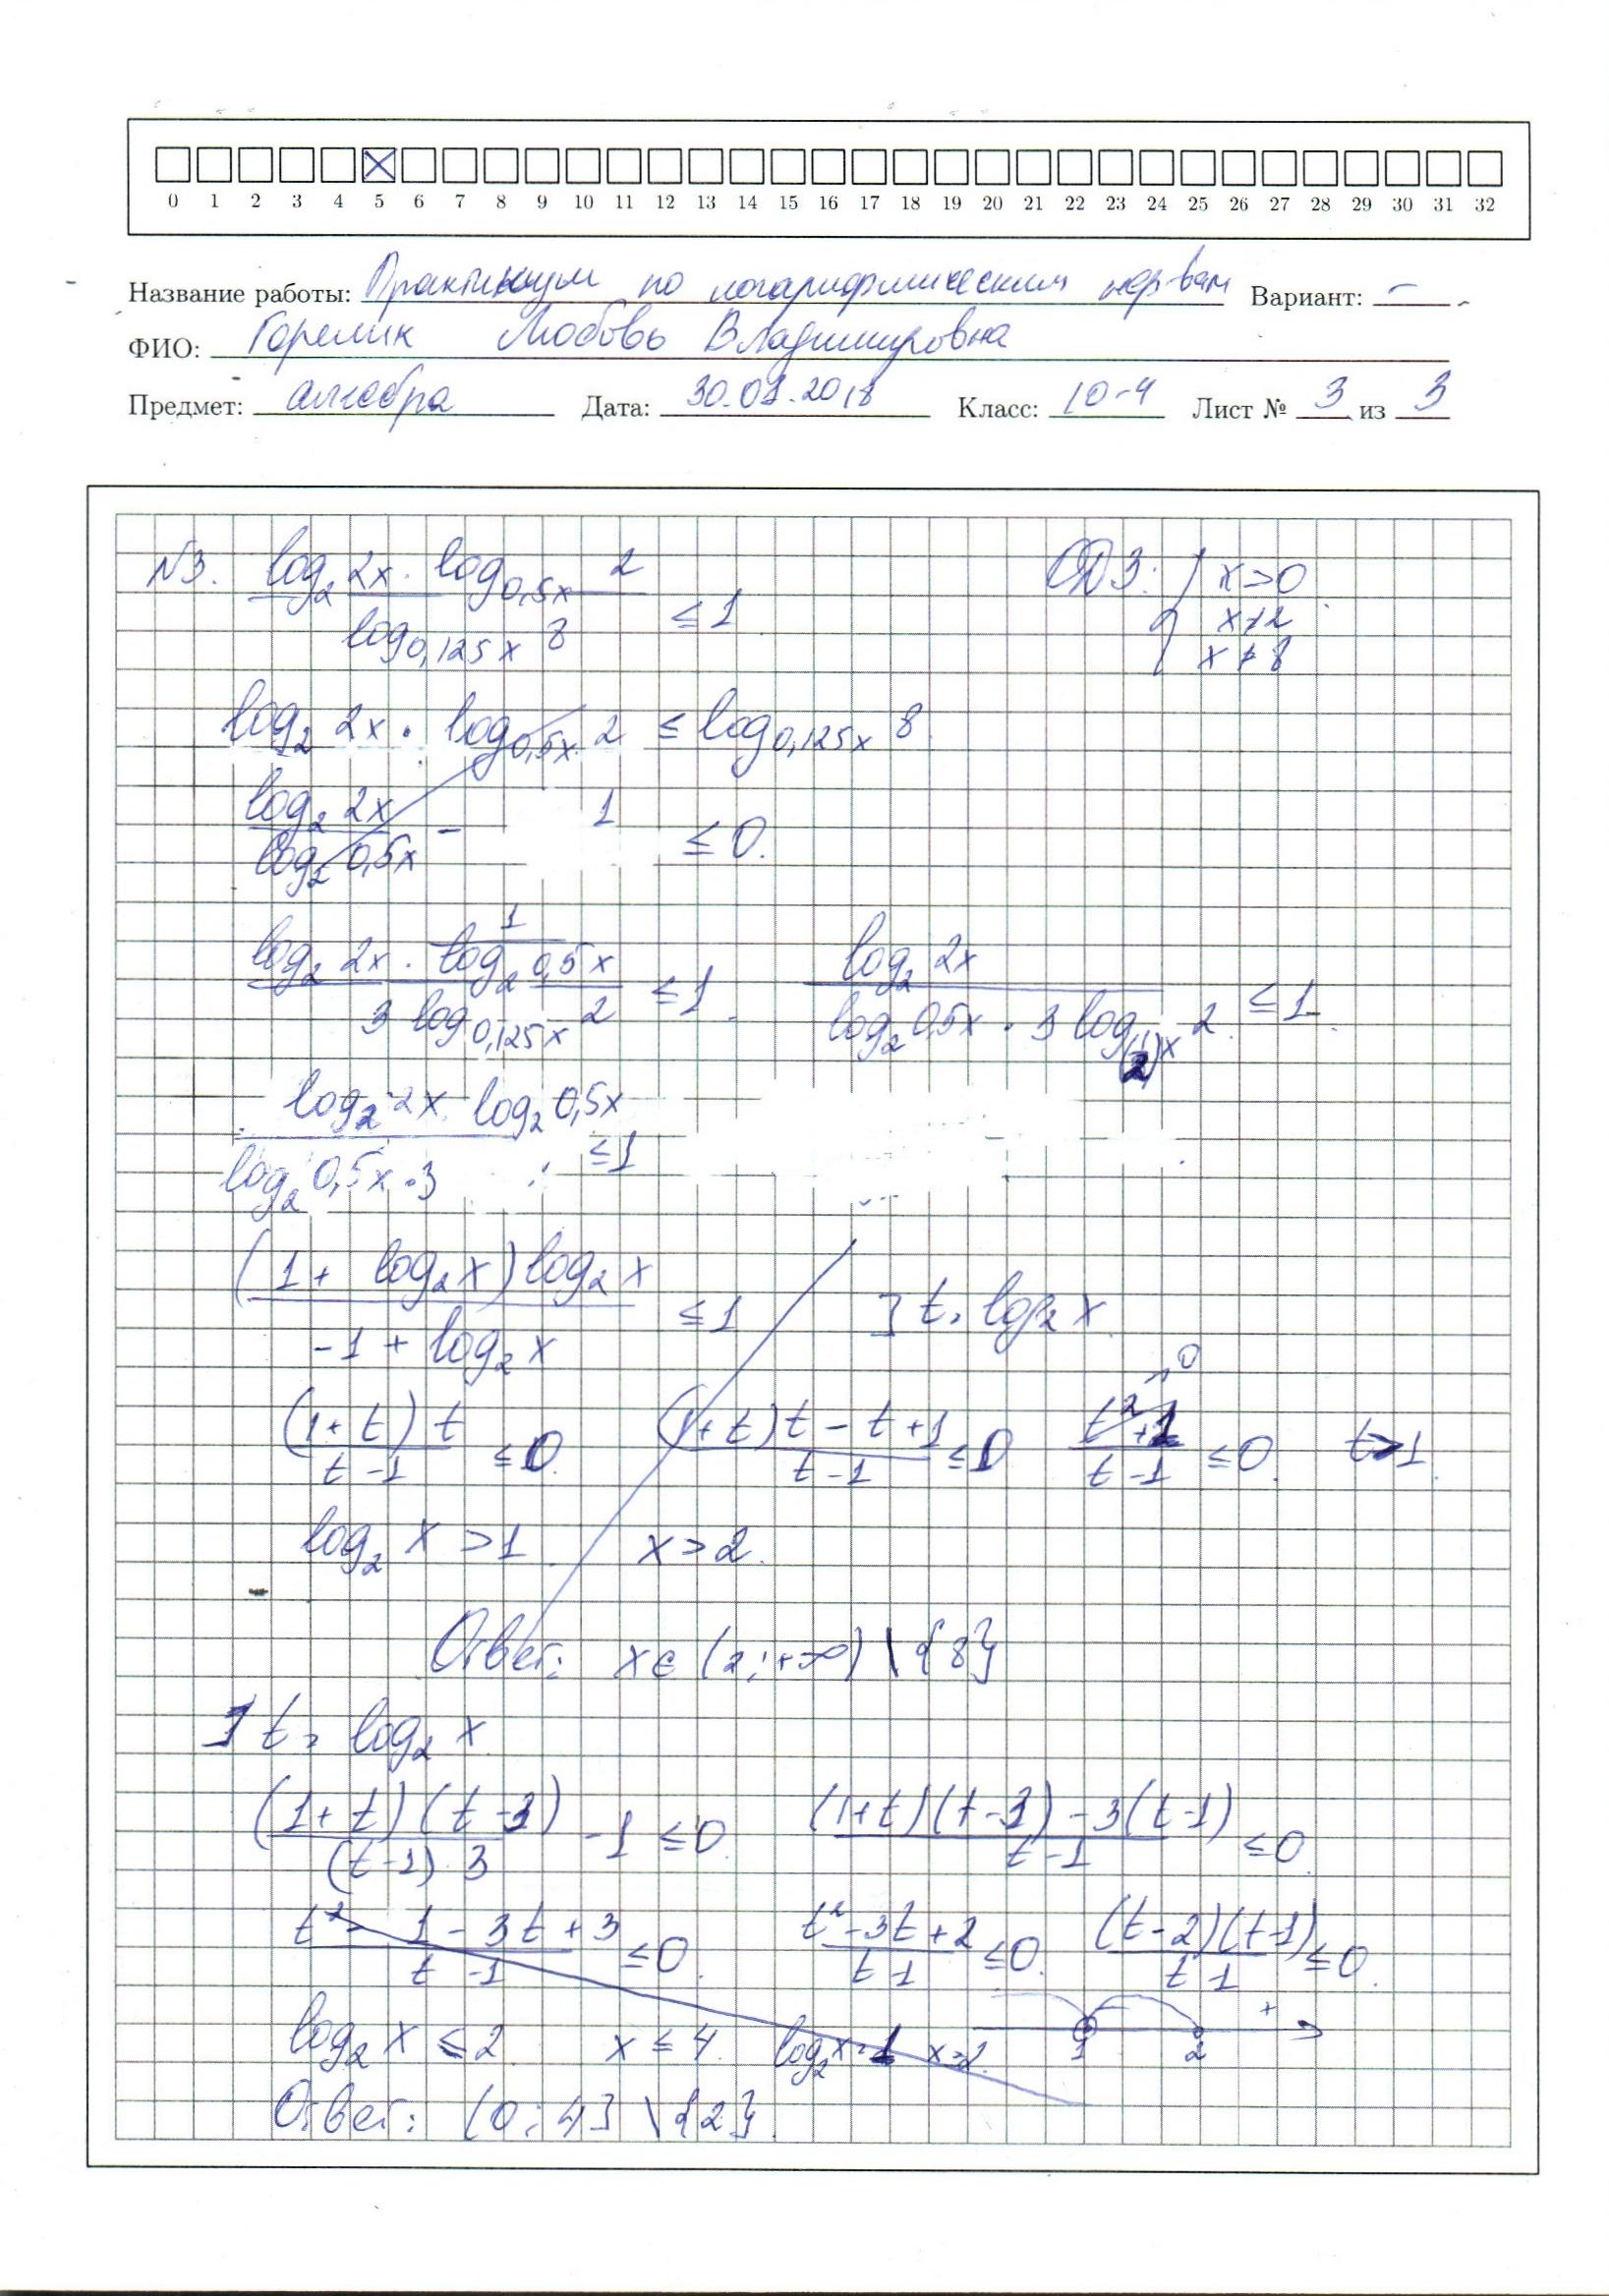 0 1 2 3 4 5 6 7 8 9 10 11 12 13 14 15 16 17 18 19 20 21 22 23 24 25 26 27 28 29 30 31 32
Название работы: Практикум по логарифмическим нер-вам Вариант: –
ФИО: Горелик Любовь Владимировна
Предмет: алгебра Дата: 30.01.2018 Класс: 10-4 Лист № 3 из 3
№3. log₂ 2x · log₀,₅ₓ 2 / log₀,₁₂₅ₓ 8 ≤ 1 ОДЗ: { x>0 x≠2 x≠8
log₂ 2x · log₀,₅ₓ 2 ≤ log₀,₁₂₅ₓ 8
log₂ 2x / log₂ 0,5x – 1 ≤ 0.
log₂ 2x · 1/log₂ 0,5x / 3 log₀,₁₂₅ₓ 2 ≤ 1. log₂ 2x / log₂ 0,5x · 3 log 2 ≤ 1.
log₂ 2x log₂ 0,5x / log₂ 0,5x · 3 ≤ 1
(1 + log₂ x) log₂ x / -1 + log₂ x ≤ 1 ] t = log₂ x.
(1+t) t / t-1 ≤ 0. (1+t) t - t + 1 / t-1 ≤ 0 t²+1 / t-1 ≤ 0. t>1.
log₂ x > 1. x > 2.
Ответ: x ∈ (2; +∞) \ {8}
] t = log₂ x
(1+t)(t-3) / (t-1) · 3 - 1 ≤ 0. (1+t)(t-3) - 3(t-1) / t-1 ≤ 0.
t² - 1 - 3t + 3 / t-1 ≤ 0. t² - 3t + 2 / t-1 ≤ 0. (t-2)(t-1) / t-1 ≤ 0.
log₂ x ≤ 2 x ≤ 4. log₂ x = 1 x = 2. 1 2 +
Ответ: (0; 4] \ {2}.